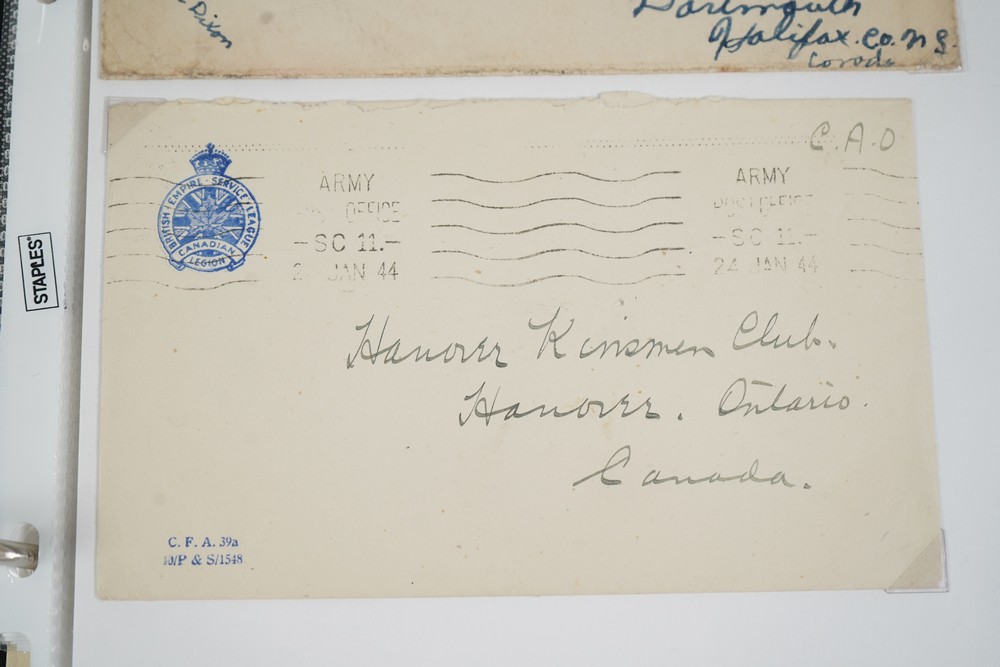 Dixon
Dartmouth
Halifax. Co. N S.
Canada
STAPLES
C. A. O
BRITISH EMPIRE SERVICE LEAGUE
CANADIAN
LEGION
ARMY
POST OFFICE
- SC 11. -
2 JAN 44
ARMY
POST OFFICE
- SC 11. -
24 JAN 44
Hanover Kinsmen Club.
Hanover. Ontario.
Canada.
C. F. A. 39a
40/P & S/1548